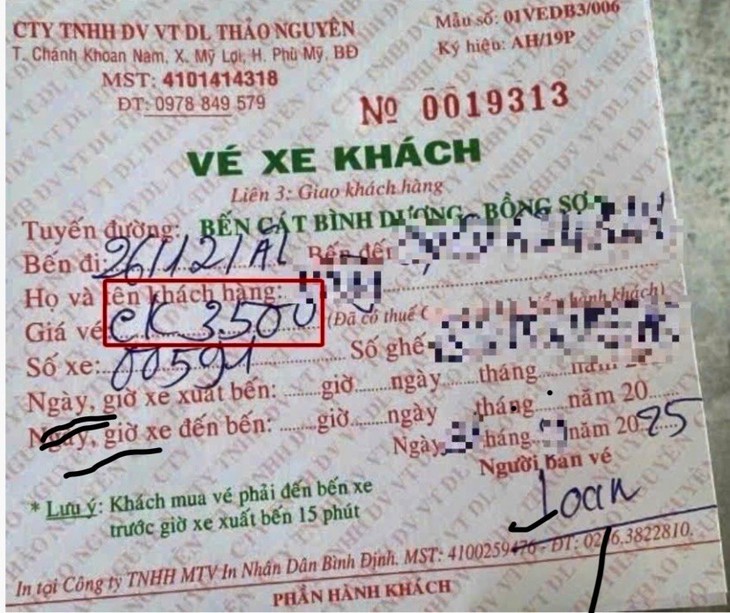 CTY TNHH DV VT DL THẢO NGUYÊN
T. Chánh Khoan Nam, X. Mỹ Lợi, H. Phù Mỹ, BĐ
MST: 4101414318
ĐT: 0978 849 579
Mẫu số: 01VEDB3/006
Ký hiệu: AH/19P
Nº 0019313
VÉ XE KHÁCH
Liên 3: Giao khách hàng
Tuyến đường: BẾN CÁT BÌNH DƯƠNG - BỒNG SƠN
Bến đi: 26/12/AL Bến đến
Họ và tên khách hàng:
Giá vé: CK 3500 (Đã có thuế hành khách)
Số xe: 00591 Số ghế
Ngày, giờ xe xuất bến: ......giờ ......ngày ......tháng ......năm 20
Ngày, giờ xe đến bến: ......giờ ......ngày ......tháng ......năm 20
Ngày tháng năm 2025
Người bán vé
Loan
* Lưu ý: Khách mua vé phải đến bến xe
trước giờ xe xuất bến 15 phút
In tại Công ty TNHH MTV In Nhân Dân Bình Định. MST: 4100259476 - ĐT: 0256.3822810.
PHẦN HÀNH KHÁCH